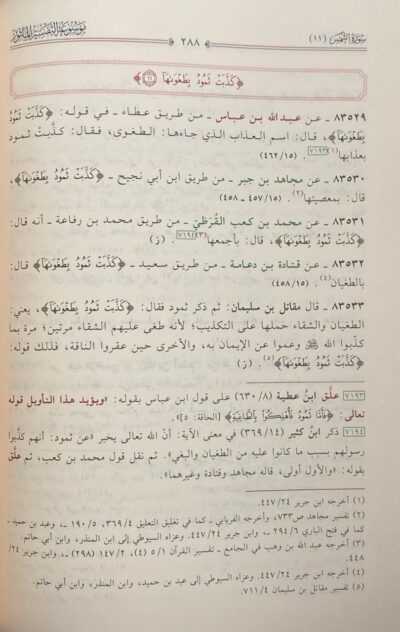 سورة الشمس (١١)
٢٨٨
موسوعة التفسير المأثور
﴿كَذَّبَتْ ثَمُودُ بِطَغْوَىٰهَآ ١١﴾
٨٣٥٢٩ - عن عبد الله بن عباس - من طريق عطاء - في قوله: ﴿كَذَّبَتْ ثَمُودُ
بِطَغْوَىٰهَآ﴾، قال: اسم العذاب الذي جاءها: الطغوى، فقال: كذَّبتْ ثمود
بعذابها(١)[٧١٩٣]. (٤٦٢/١٥)
٨٣٥٣٠ - عن مجاهد بن جبر - من طريق ابن أبي نجيح - ﴿كَذَّبَتْ ثَمُودُ بِطَغْوَىٰهَآ﴾،
قال: بمعصيتها(٢). (٤٥٧/١٥ - ٤٥٨)
٨٣٥٣١ - عن محمد بن كعب القُرَظيّ - من طريق محمد بن رفاعة - أنه قال:
﴿كَذَّبَتْ ثَمُودُ بِطَغْوَىٰهَآ﴾، قال: بأجمعها(٣)[٧١٩٤]. (ز)
٨٣٥٣٢ - عن قتادة بن دعامة - من طريق سعيد - ﴿كَذَّبَتْ ثَمُودُ بِطَغْوَىٰهَآ﴾ قال:
بالطغيان(٤). (٤٥٨/١٥)
٨٣٥٣٣ - قال مقاتل بن سليمان: ثم ذكر ثمود فقال: ﴿كَذَّبَتْ ثَمُودُ بِطَغْوَىٰهَآ﴾، يعني:
الطغيان والشقاء حملها على التكذيب؛ لأنه طغى عليهم الشقاء مرتين؛ مرة بما
كذّبوا الله ﷻ وعموا عن الإيمان به، والأخرى حين عقروا الناقة، فذلك قوله:
﴿كَذَّبَتْ ثَمُودُ بِطَغْوَىٰهَآ﴾(٥). (ز)
[٧١٩٣] علَّق ابنُ عطية (٦٣٠/٨) على قول ابن عباس بقوله: «ويؤيد هذا التأويل قوله
تعالى: ﴿فَأَمَّا ثَمُودُ فَأُهْلِكُوا۟ بِٱلطَّاغِيَةِ﴾ [الحاقة: ٥]».
[٧١٩٤] ذكر ابنُ كثير (٣٦٩/١٤) في معنى الآية: أنّ الله تعالى يخبر «عن ثمود: أنهم كذَّبوا
رسولهم بسبب ما كانوا عليه من الطغيان والبغي». ثم نقل قول محمد بن كعب، ثم علَّق
بقوله: «والأول أولى، قاله مجاهد وقتادة وغيرهما».
(١) أخرجه ابن جرير ٤٤٧/٢٤.
(٢) تفسير مجاهد ص٧٣٣، وأخرجه الفريابي - كما في تغليق التعليق ٣٦٩/٤، ١٩٠/٥ -، وعبد بن حميد -
كما في فتح الباري ٢٩٤/٦ -، وابن جرير ٤٤٧/٢٤. وعزاه السيوطي إلى ابن المنذر، وابن أبي حاتم.
(٣) أخرجه عبد الله بن وهب في الجامع - تفسير القرآن ٥/١ (٤)، ١٤٧/٢ (٢٩٨) -، وابن جرير ٢٤/
٤٤٨.
(٤) أخرجه ابن جرير ٤٤٧/٢٤. وعزاه السيوطي إلى عبد بن حميد، وابن المنذر، وابن أبي حاتم.
(٥) تفسير مقاتل بن سليمان ٧١١/٤.